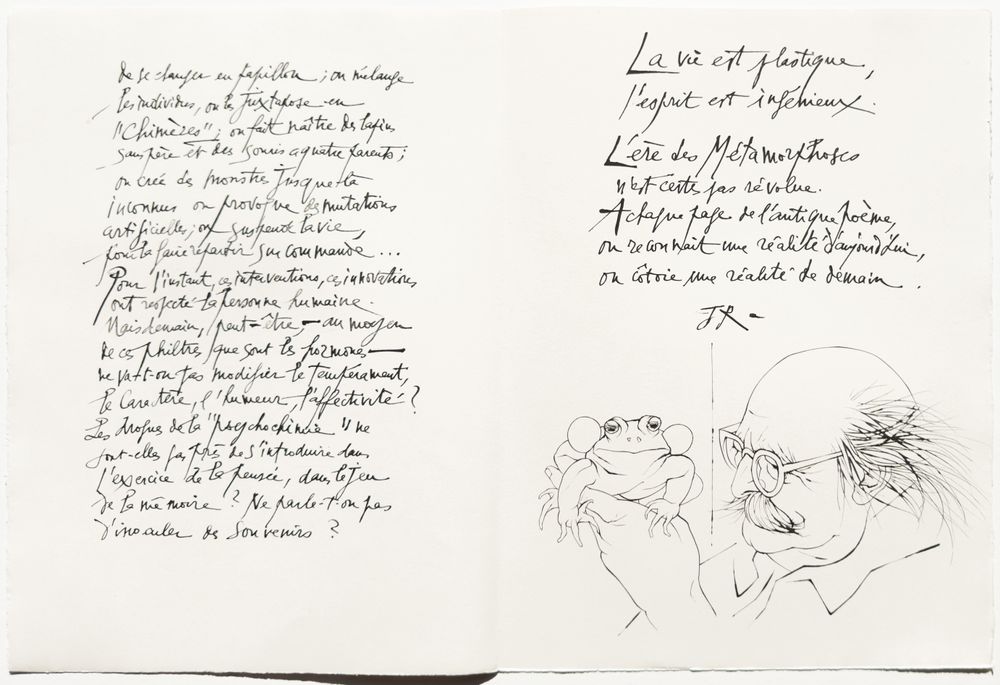 de se changer en papillon ; on mélange
les individus, on les juxtapose en
"Chimères" ; on fait naître des lapins
sans père et des souris a quatre parents ;
on crée des monstres jusque-là
inconnus on provoque des mutations
artificielles ; on suspend la vie,
pour la faire repartir sur commande ...
Pour l'instant, ces interventions, ces innovations
ont respecté la personne humaine.
Mais demain, peut-être, — au moyen
de ces philtres que sont les hormones —
ne va-t-on pas modifier le tempérament,
le caractère, l'humeur, l'affectivité ?
Les drogues de la "psychochimie" ne
sont-elles pas près de s'introduire dans
l'exercice de la pensée, dans le jeu
de la mémoire ? Ne parle-t-on pas
d'inoculer des souvenirs ?
La vie est plastique,
l'esprit est ingénieux.
L'ère des Métamorphoses
n'est certes pas révolue.
A chaque page de l'antique poème,
on reconnaît une réalité d'aujourd'hui,
on côtoie une réalité de demain.
JR -